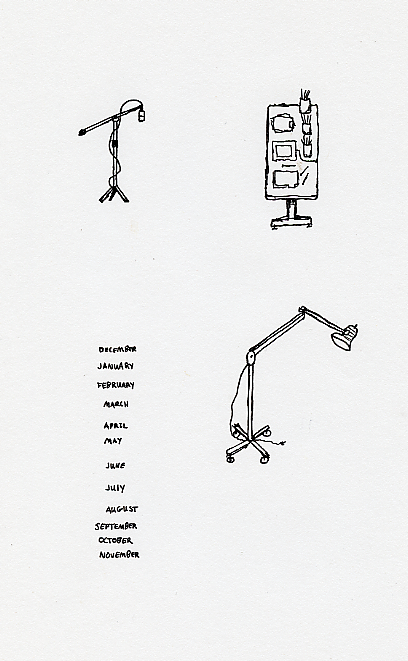 DECEMBER
JANUARY
FEBRUARY
MARCH
APRIL
MAY
JUNE
JULY
AUGUST
SEPTEMBER
OCTOBER
NOVEMBER